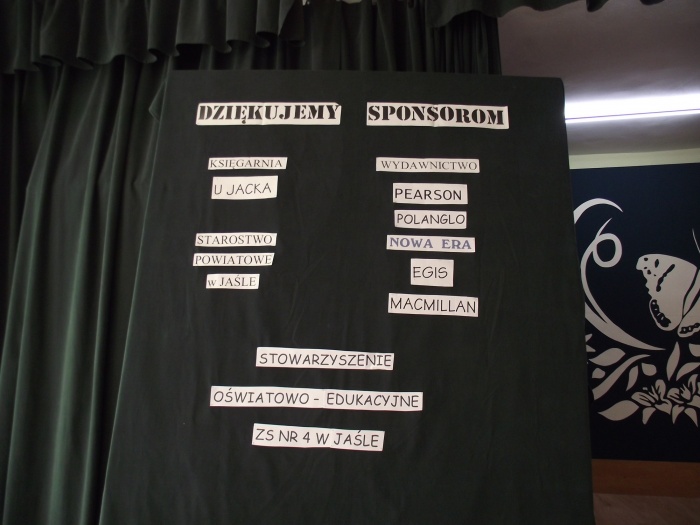 DZIĘKUJEMY SPONSOROM
KSIĘGARNIA
U JACKA
STAROSTWO
POWIATOWE
w JAŚLE
WYDAWNICTWO
PEARSON
POLANGLO
NOWA ERA
EGIS
MACMILLAN
STOWARZYSZENIE
OŚWIATOWO - EDUKACYJNE
ZS NR 4 W JAŚLE